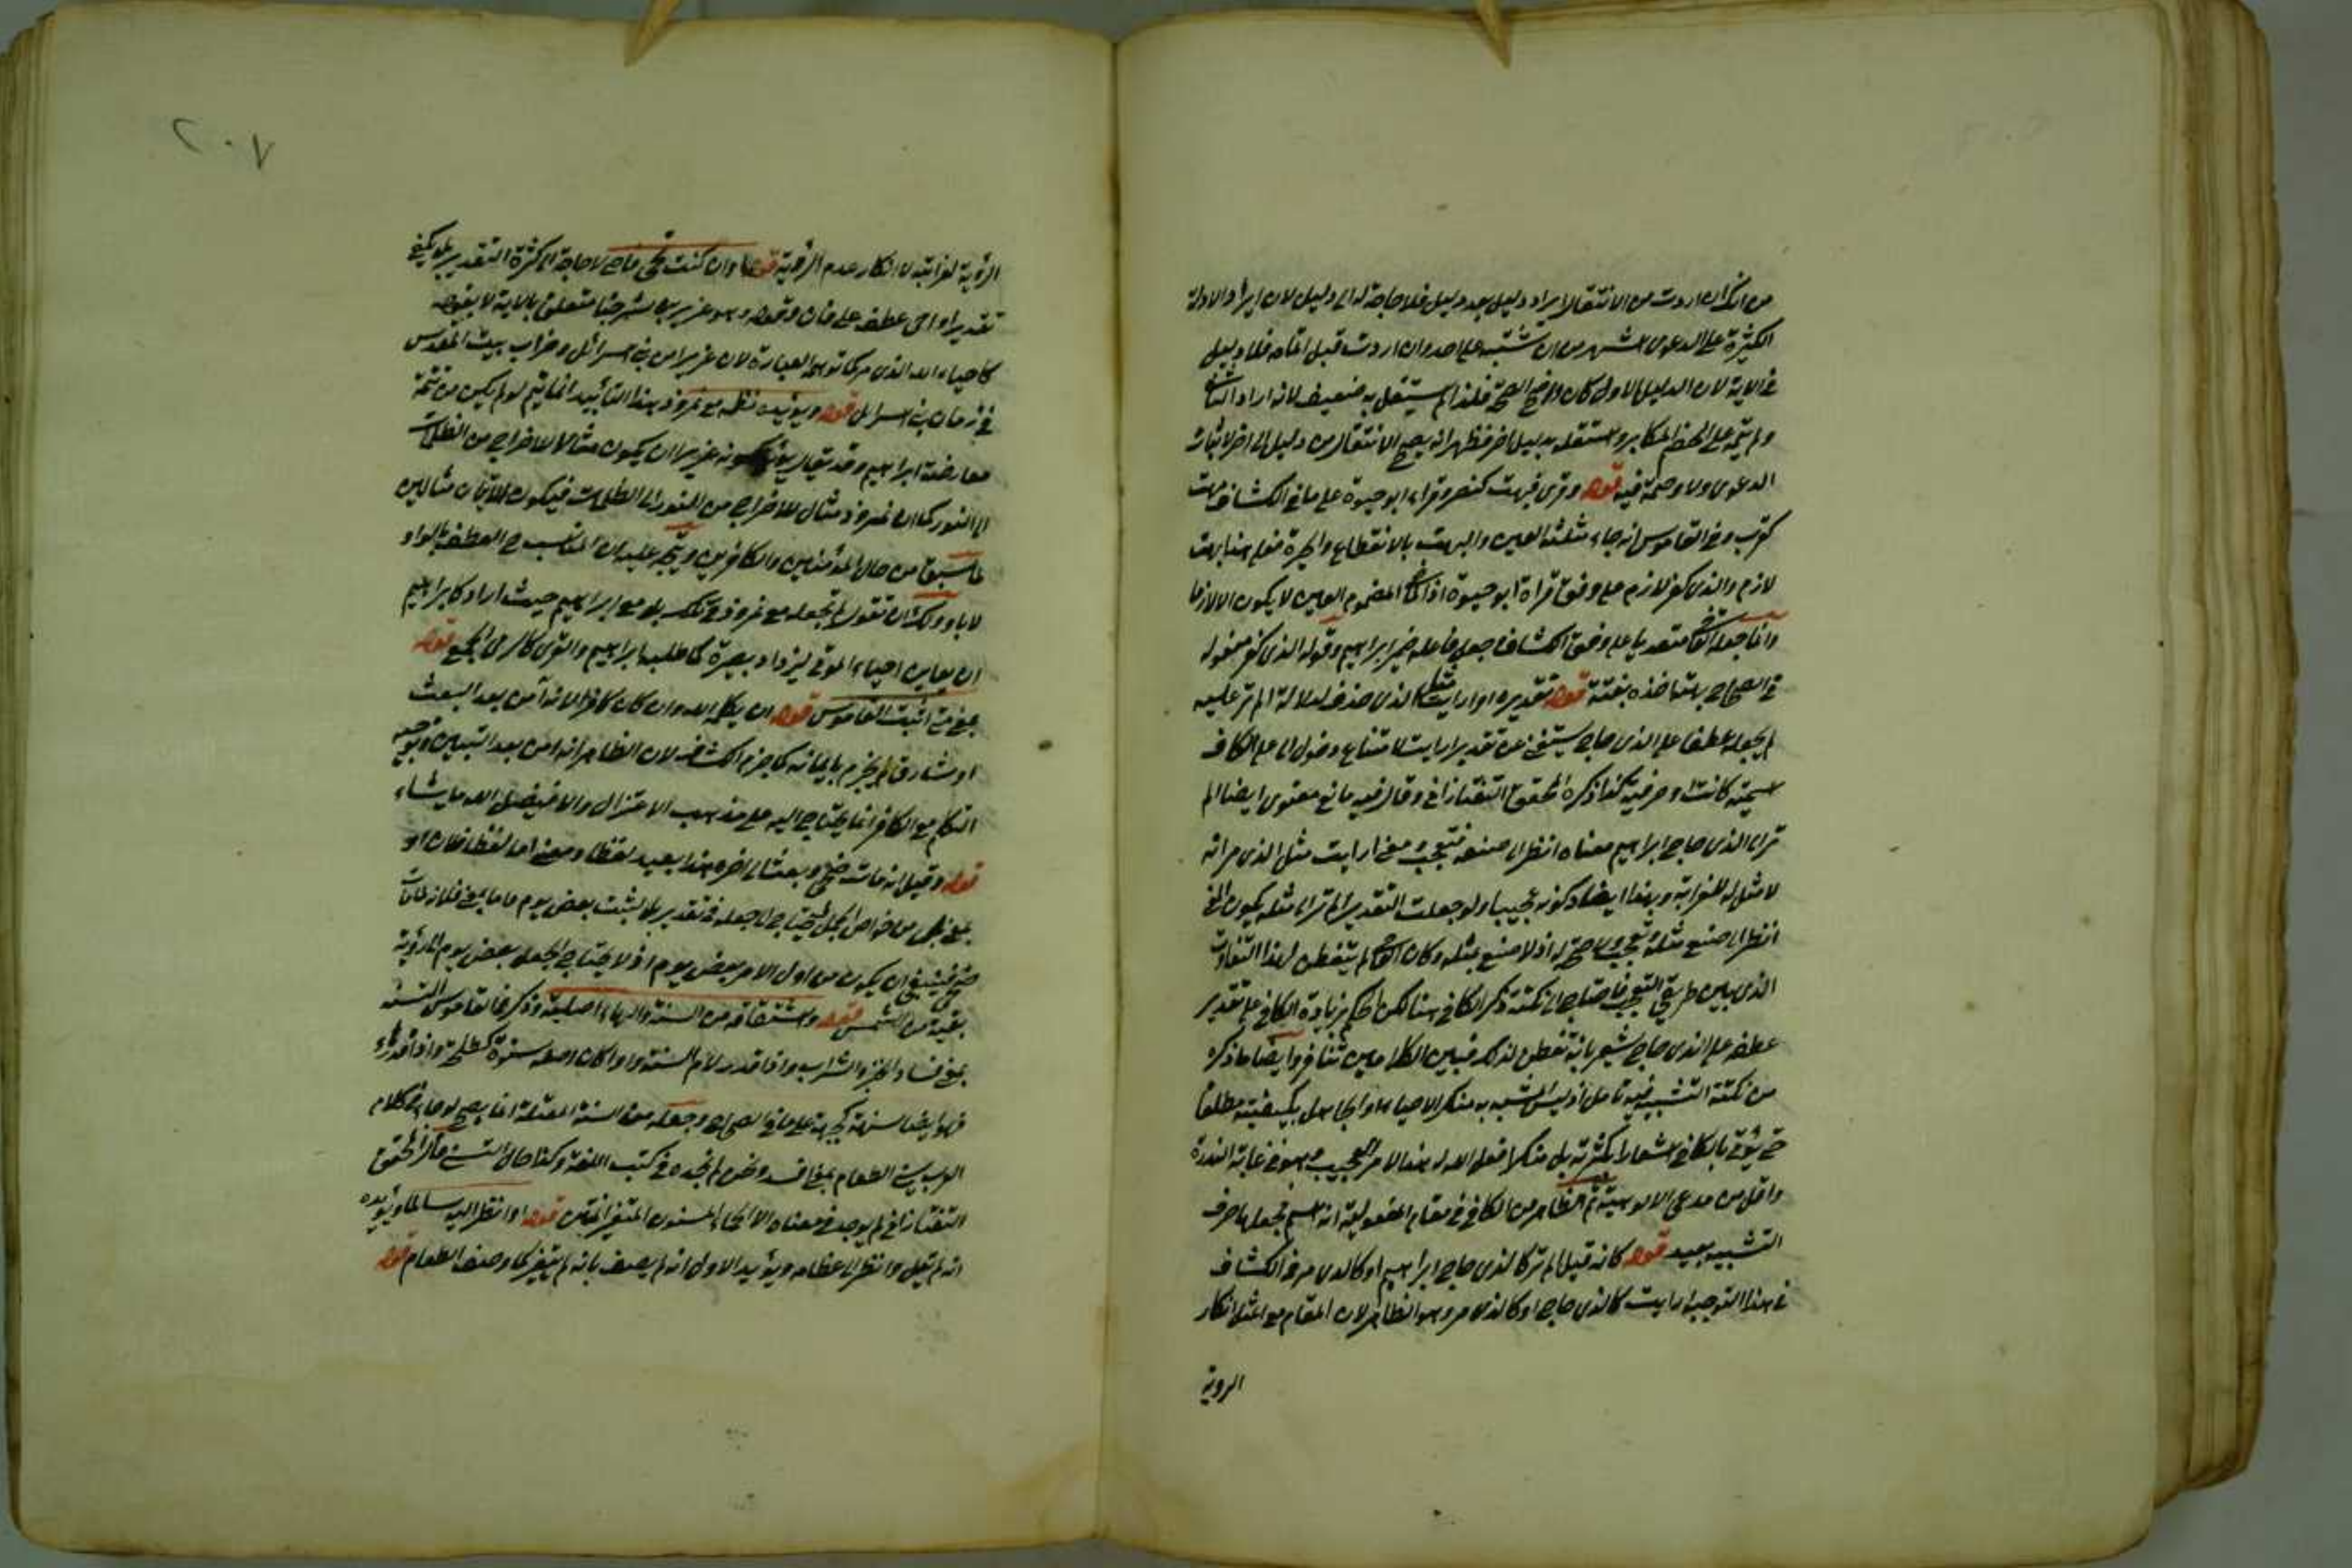 من انك ان اردت من الانتقال ايراد دليل بعد دليل فلا حاجة له الى دليل لان ايراد الادلة
الكثيرة على الدعوى اشهر من ان يشتبه على احد وان اردت قبل اتمامه فلا دليل
في الاية لان الدليل الاول كان واضح الصحة فلذا لم يستقل به ضعيف لانه اراد
ولم يتم على الخصم المكابر واستقله بدليل اخر فظهر انه يصح الانتقال من دليل الى اخر لاثبات
الدعوى ولا وصمة فيه قوله وقرئ فبهت كنصر وقراءة ابو حيوة على ما في الكشاف بهت
كقرب وفي القاموس انه جاء مثلثة العين والبهت بالانقطاع والحيرة فعلى هذا بهت
لازم والذي كفر لازم على وفق قراة ابو حيوة اذ المضموم العين لا يكون الا لازما
وانما جعله متعديا على وفق الكشاف جعل فاعله ضمير ابراهيم وقوله الذي كفر مفعوله
في الصحاح بهته اخذه بغتة قوله تقديره او ارايت مثل الذي حذف لدلالة الم تر عليه
لم يجعله عطفا على الذي حاج يستغنى عن تقدير ارايت لامتناع دخول الى على الكاف
اسمية كانت او حرفية كذا ذكره المحقق التفتازاني وقال فيه مانع معنوي ايضا الم
تر الى الذي حاج ابراهيم معناه انظر الى صنعه فتعجب ومعنى ارايت مثل الذي مر انه
لا مثل له للغرابة وبهذا ايضا دكونه عجيبا ولو جعلت التقدير الم تر الى مثله يكون المعنى
انظر الى صنع مثله وتعجب ولا صحة له اذ لا صنع لمثله وكان لم يتفطن لهذا التفاوت
الذي بين طريقي التعجب فاحتاج الى نكتة ذكر الكاف هنا لكن الحكم بزيادة الكاف على تقدير
عطفه على الذي حاج يشعر بانه تفطن لذلك فبين الكلامين تنافر وايضا ما ذكره
من نكتة التشبيه فيه تامل اذ ليس المشبه به منكر الاحياء او الجاهل بكيفيته مطلقا
حتى يؤتى بالكاف اشعارا بكثرته بل منكرا فعل الله له هذا الامر العجيب وهو في غاية الندرة
واقل من مدعي الالوهية ثم الظاهر من الكاف في مقام المفعولية انه اسم فجعلها حرف
التشبيه بعيد قوله كانه قيل الم تر كالذي حاج ابراهيم او كالذي مر في الكشاف
في هذا التوجيه ارايت كالذي حاج او كالذي مر وهو الظاهر لان المقام مع المثل انكار
الروية
٢٠٧
الرؤية لغرابته لا انكار عدم الرؤية قوله وان كنت تحيي فاحي لا حاجة الى كثرة التقدير بل يكفي
تقدير او احي عطف على فان وقوله وهو عزير بن شرحيا متعلق بالاية لا بقوله
كاحياء الله الذي مر كما توهمه العبارة لان عزيرا من بني اسرائل وخراب بيت المقدس
في زمان بني اسرائل قوله ويؤيده نظمه مع نمروذ هذا التأييد انما يتم لو لم يكن من تتمة
معارضة ابراهيم وقد يقال يؤيد كونه عزيرا ان يكون مثالا للاخراج من الظلمات
الى النور كما ان نمروذ مثال للاخراج من النور الى الظلمات فيكون الاثنان مثالين
لما سبق من حال المؤمنين والكافرين ويتجه عليه ان المناسب ح العطف بالواو
لا باو ولك ان تقول لم تجعله مع نمروذ في تلك بل مع ابراهيم حيث اراد كابراهيم
ان يعاين احياء الموتى ليزداد بصيرة كما طلبه ابراهيم والقرى كالرمى الجمع قوله
بمعنى اثبت القاموس قوله ان يكلمه الله وان كان كافرا لانه آمن بعد البعث
او شارف لم يجزم بايمانه كما جزم الكشاف لان الظاهر انه امن بعد التبيين وتوجيه
التكلم مع الكافر انما يحتاج اليه على مذهب الاعتزال والا فيفعل الله ما يشاء
قوله وقيل انه مات ضحى وبعث الى اخره هذا بعيد لفظا ومعنى اما لفظا فلان او
بمعنى بل من خواص الجمل فيحتاج الى جعله في تقدير بل لبثت بعض يوم واما معنى فلانه لما مات
ضحى فينبغي ان يكون من اول الامر بعض يوم اذ لا يحتاج الى جعله بعض يوم الى رؤية
بقية من الشمس قوله واشتقاقه من السنة والهاء اصلية وذكر في القاموس التسنه
بمعنى فساد الخبز والشراب وانما قدر لام السنة واوا كان اصله سنوة كطلحة واذا قدر هاء
فهو ايضا سنهة كجبهة على ما في الصحاح وجعله من السنة المعتلة انما يصح لو جاء في كلام
العرب سنى الطعام بمعنى فسد ونحن لم نجده في كتب اللغة وكذا حال التسني قال المحقق
التفتازاني لم يوجد في معناه الا الحماء المسنون المتغير المنتن قوله او انظر اليه سالما ويؤيده
انه لم يقل وانظر الى عظامه ويؤيد الاول انه لم يصف بانه لم يتغير كما وصف الطعام قوله